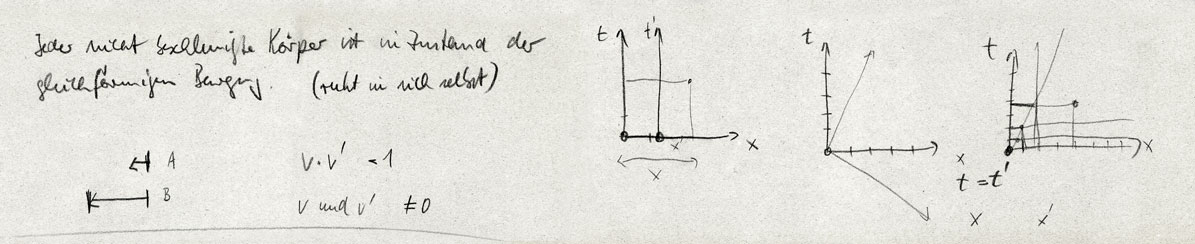 Jeder nicht beschleunigte Körper ist in Zustand der
gleichförmigen Bewegung. (ruht in sich selbst)
A
B
v · v' = 1
v und v' ≠ 0
t t'
x
x'
x
t
x
t
x
t = t'
x x'